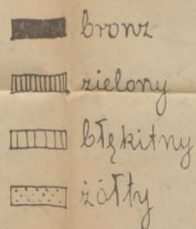 bronz
zielony
błękitny
żółty